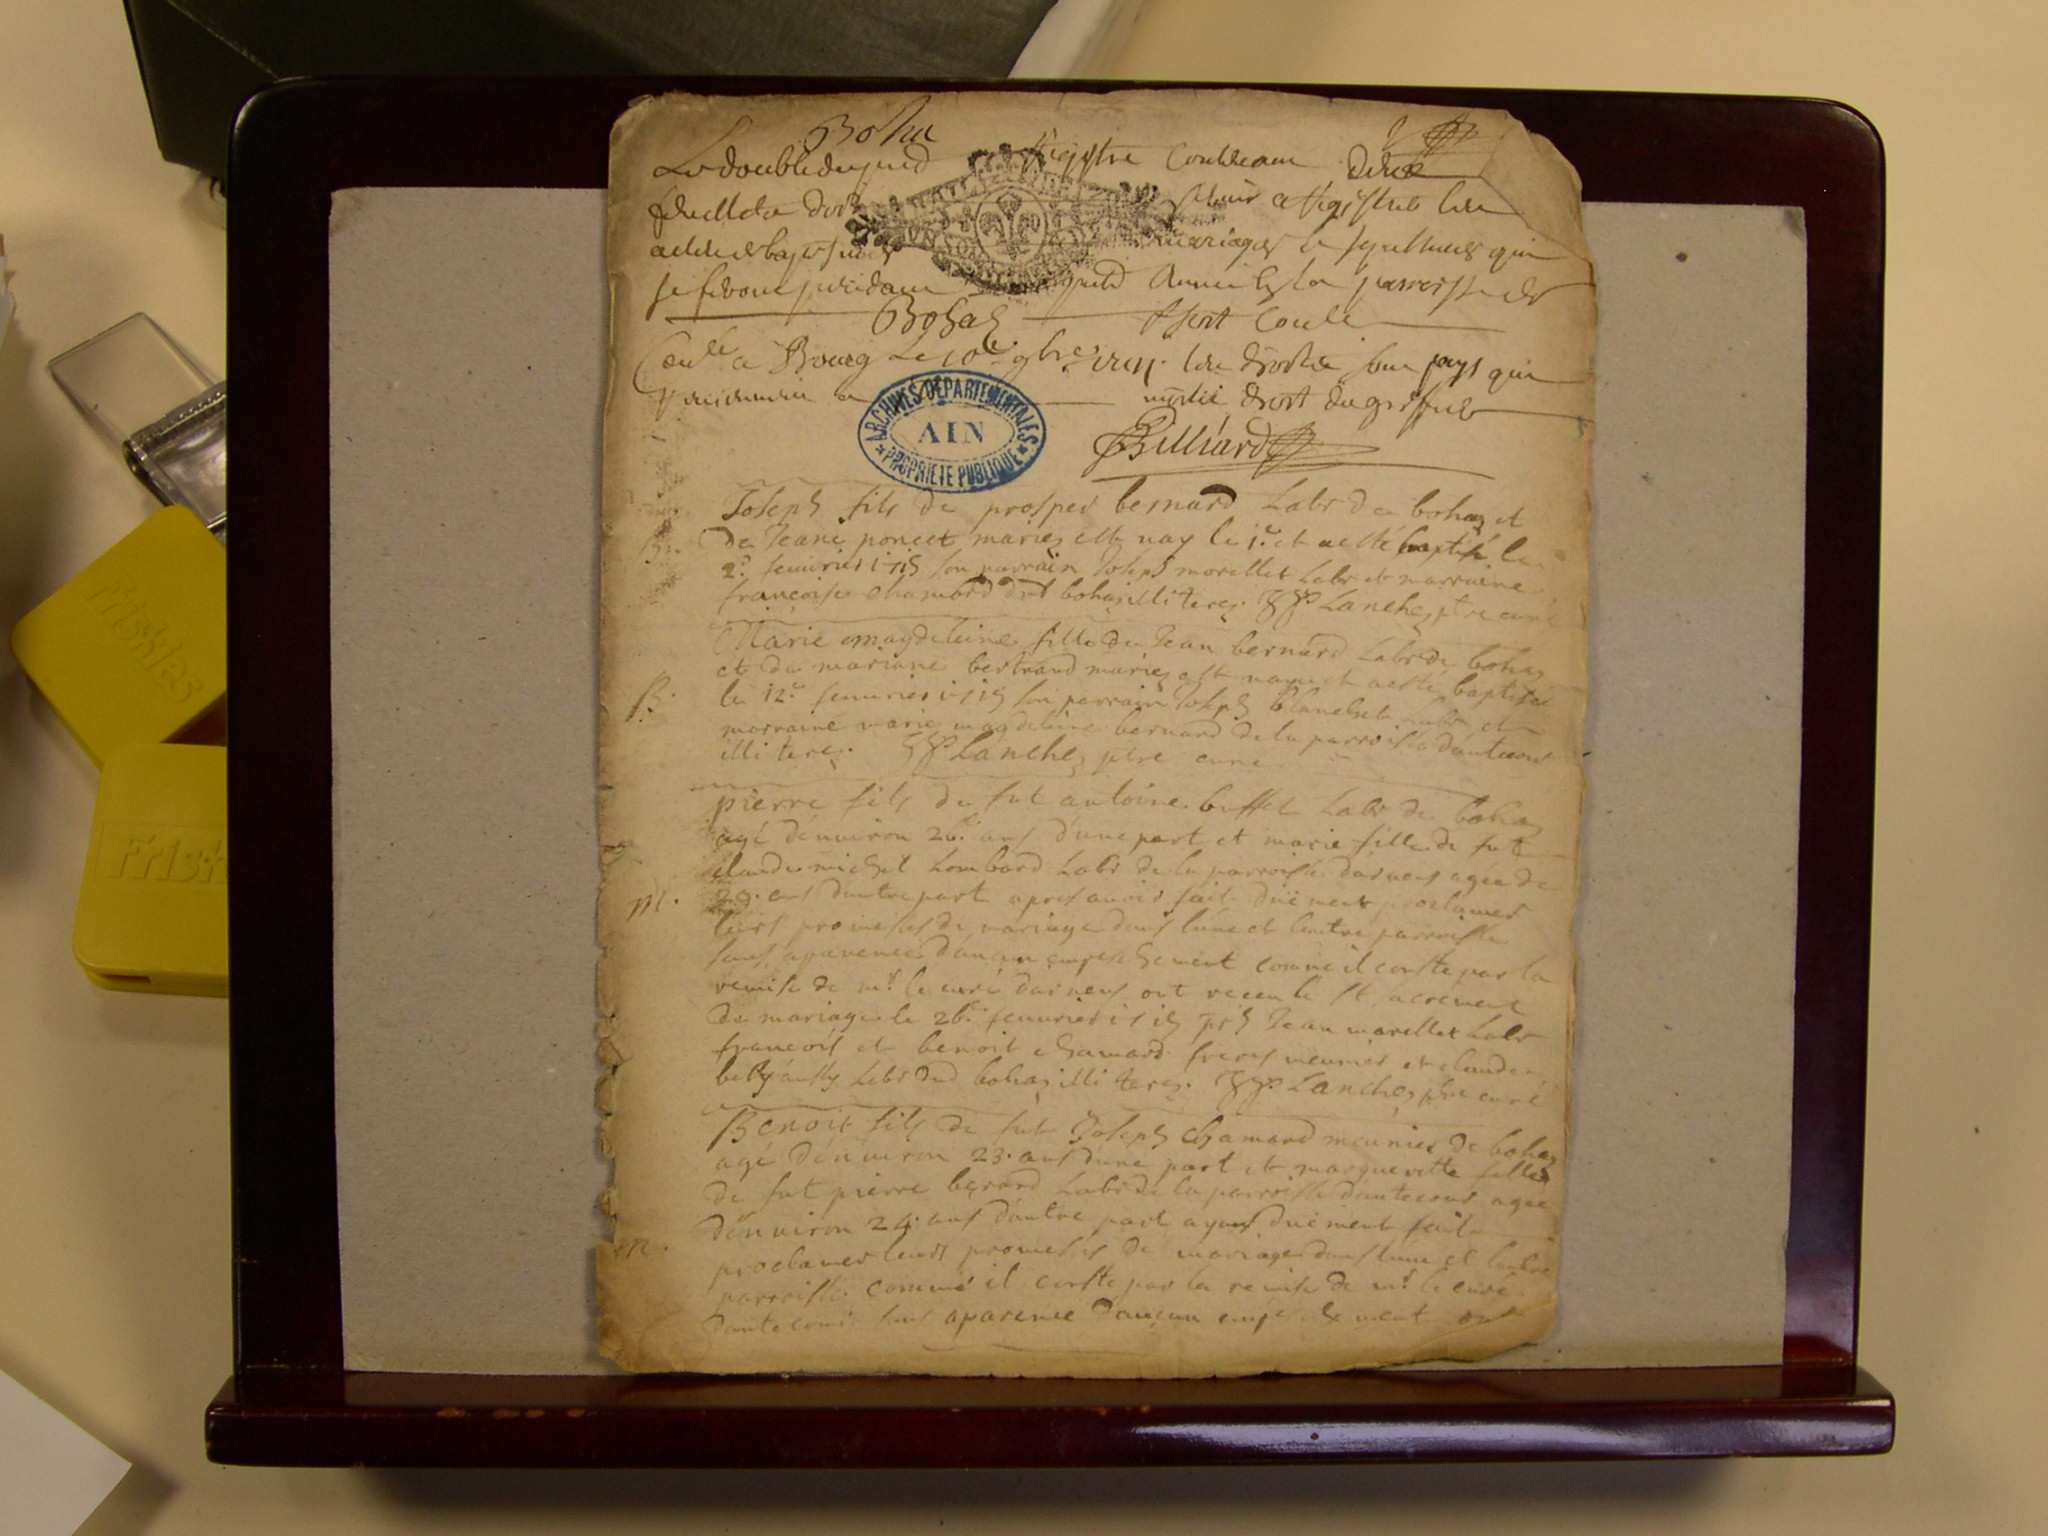 Bohas
Le double du pnt Registre contenant
feuillets doit servir a registrer les
actes de baptesmes mariages & sepultures qui
se feront pendant annee en la parroisse de
Bohas
a Bourg le 10e 9bre les droits sont payé qui
moitié droit du greffier
ARCHIVES DÉPARTEMENTALES
AIN
PROPRIÉTÉ PUBLIQUE
Billiard
Joseph fils de prosper bernard Labr de bohas et
B. de Jeane poncet mariez est nay le 1er et a esté baptisé le
2e feuurier 1715 son parrain Joseph morellet Labr et marraine
françoise chamard dud bohas illiterez. Lanchez ptre curé
Marie magdeleine fille de Jean bernard Labr de bohas
et de mariane bertrand mariez est nayé et a esté baptisée
B. le 12e feuurier 1715 son parrain Joseph blanchet Labr et
marraine marie magdeleine bernard de la parroisse d'antecour
illiterez. Lanchez ptre curé
pierre fils de fut antoine buffet Labr de bohas
agé d'enuiron 26 ans d'une part et marie fille de fut
claude michel Lombard Labr de la parroisse d'arnens agee de
m. ans d'autre part apres auoir fait düement proclamer
leurs promesses de mariage dans l'une et l'autre parroisse
sans aparence d'aucun empeschement comme il conste par la
remise de mr le curé d'arnens ont receu le st sacrement
de mariage le 26e feuurier 1715 pts Jean morellet Labr
françois et benoit chamard freres meunier et claude
Labr dud bohas illiterez. Lanchez ptre curé
Benoit fils de fut Joseph chamard meunier de bohas
agé d'enuiron 23 ans d'une part et margueritte fille
de fut pierre berard Labr de la parroisse d'antecour agee
d'enuiron 24 ans d'autre part ayant düement fait
m. proclamer leurs promesses de mariage dans l'une et l'autre
parroisse comme il conste par la remise de mr le curé
d'antecour sans aparence d'aucun empeschement ont
Friskies
Frisk